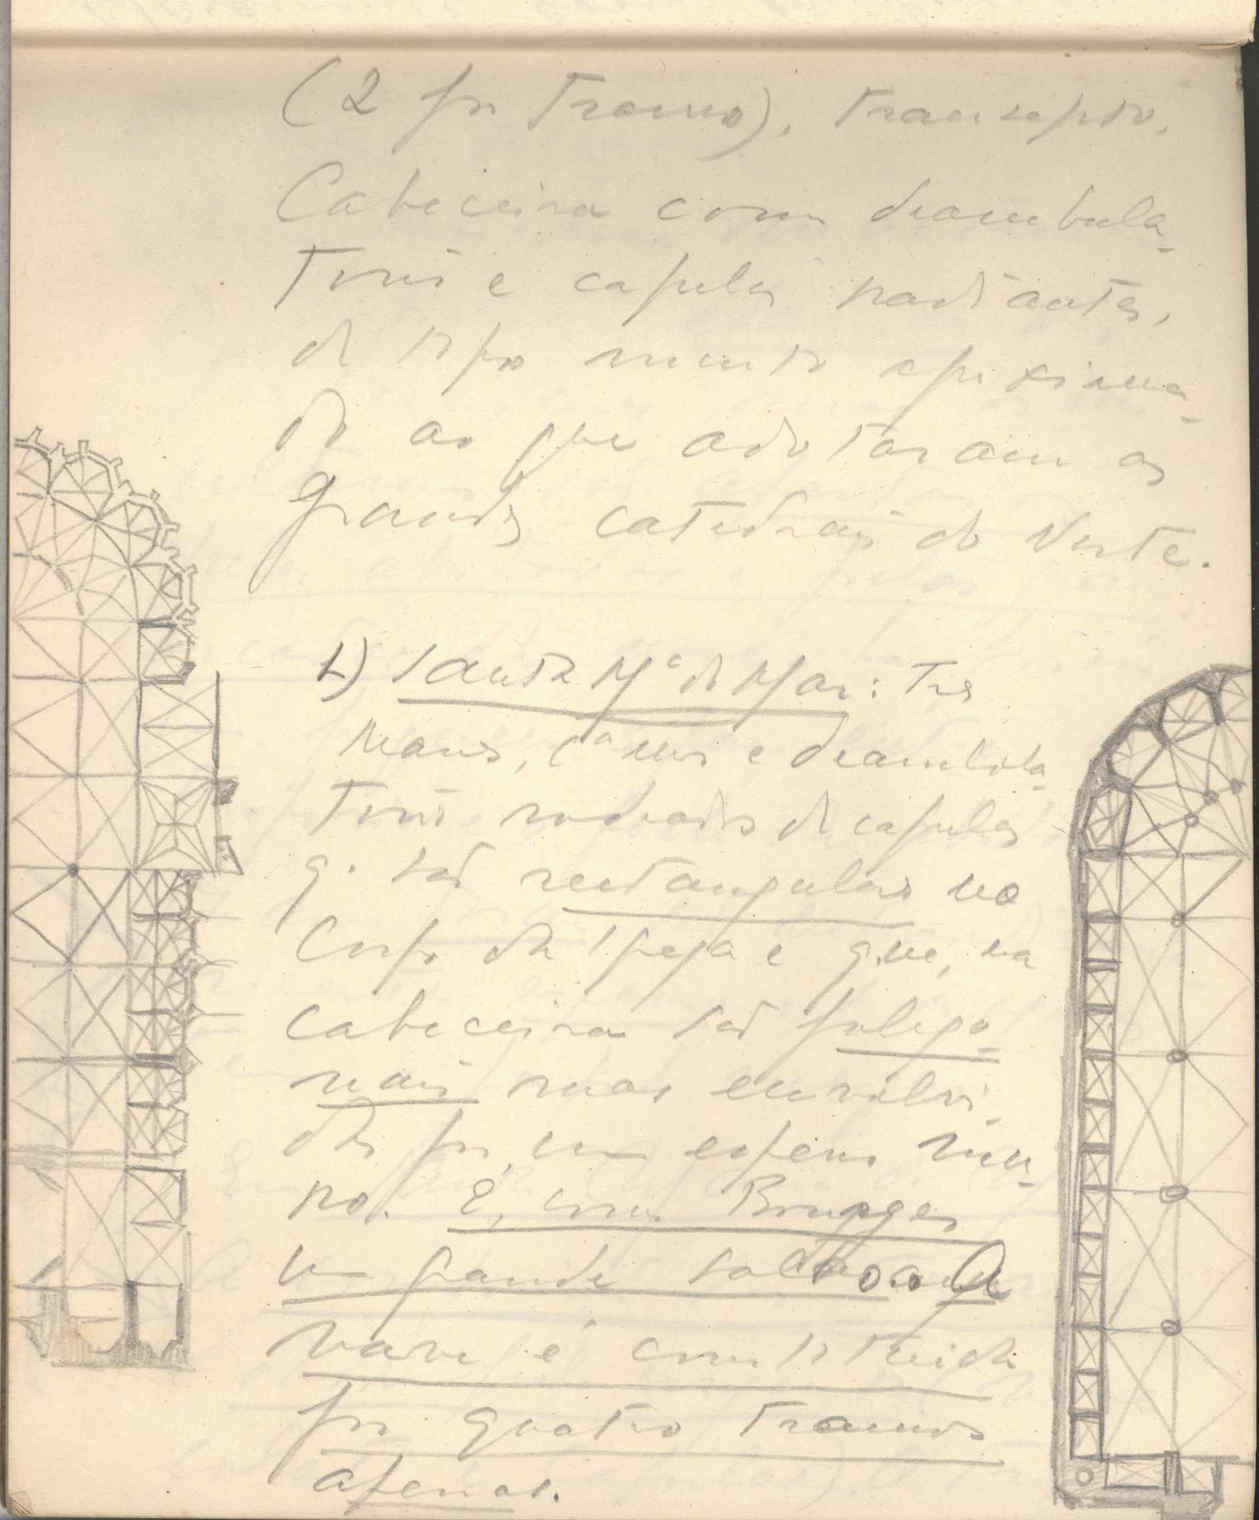 (2 por tramo), transepto.
Cabeceira com deambula-
torio e capelas radiantes,
de tipo muito aproxima-
do ao que adotaram as
grandes catedrais do Norte.
L) Santa Mª do Mar: Tres
naves, e deambula-
torio rodeados de capelas
q. são rectangulares no
corpo da Igreja e que, na
cabeceira são poligo-
nais mas envolvi-
das por um
E, como
um grande salão. A
nave é constituida
por quatro tramos
apenas.